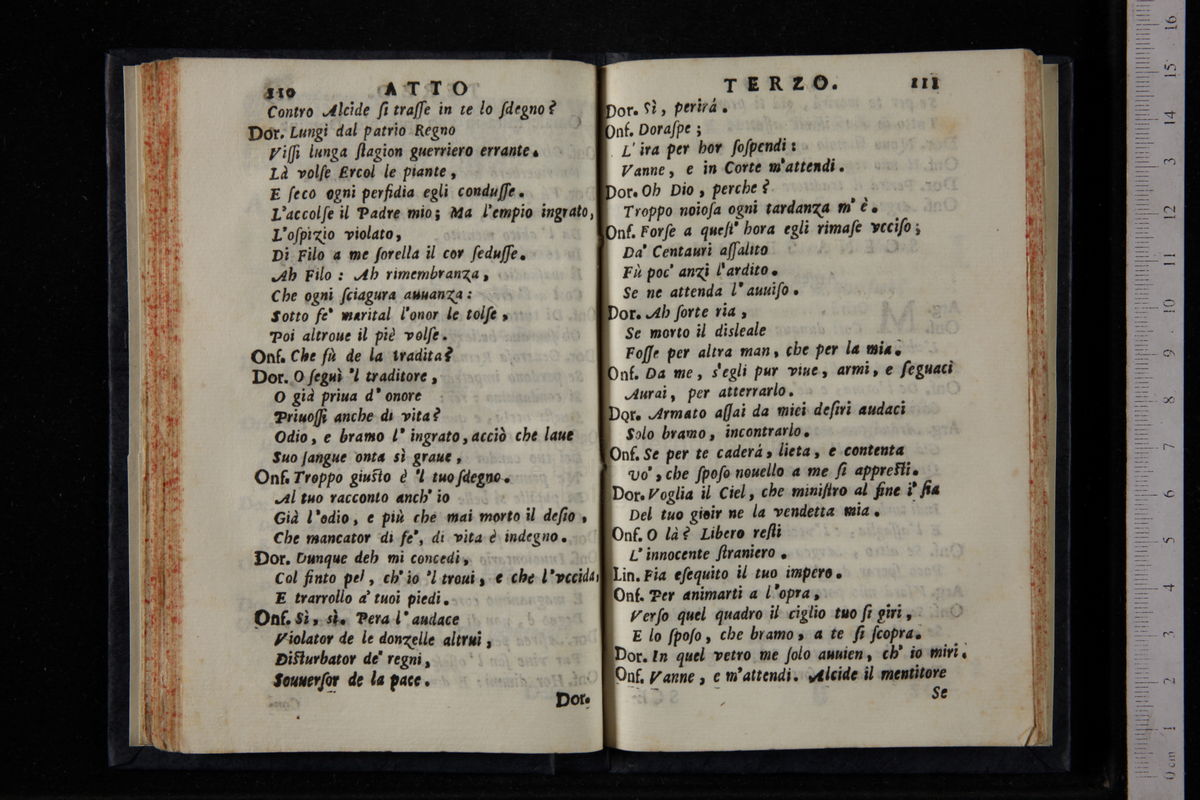 110 ATTO
Contro Alcide ſi traſſe in te lo ſdegno?
Dor. Lungi dal patrio Regno
Viſſi lunga ſtagion guerriero errante.
Là volſe Ercol le piante,
E ſeco ogni perfidia egli conduſſe.
L'accolſe il Padre mio; Ma l'empio ingrato,
L'oſpizio violato,
Di Filo a me ſorella il cor ſeduſſe.
Ah Filo: Ah rimembranza,
Che ogni ſciagura auuanza:
Sotto fe' marital l'onor le tolſe,
Poi altroue il piè volſe.
Onf. Che fù de la tradita?
Dor. O ſeguì 'l traditore,
O già priua d'onore
Priuoſſi anche di vita?
Odio, e bramo l'ingrato, acciò che laue
Suo ſangue onta sì graue,
Onf. Troppo giuſto è 'l tuo ſdegno.
Al tuo racconto anch'io
Già l'odio, e più che mai morto il deſio,
Che mancator di fe', di vita è indegno.
Dor. Dunque deh mi concedi,
Col finto pel, ch'io 'l troui, e che l'vccida,
E trarrollo a' tuoi piedi.
Onf. Sì, sì. Pera l'audace
Violator de le donzelle altrui,
Diſturbator de' regni,
Souuerſor de la pace.
Dor.
TERZO. 111
Dor. Sì, perirà.
Onf. Doraſpe;
L'ira per hor ſoſpendi:
Vanne, e in Corte m'attendi.
Dor. Oh Dio, perche?
Troppo noioſa ogni tardanza m'è.
Onf. Forſe a queſt'hora egli rimaſe vcciſo;
Da' Centauri aſſalito
Fù poc'anzi l'ardito.
Se ne attenda l'auuiſo.
Dor. Ah ſorte ria,
Se morto il disleale
Foſſe per altra man, che per la mia.
Onf. Da me, s'egli pur viue, armi, e ſeguaci
Aurai, per atterrarlo.
Dor. Armato aſſai da miei deſiri audaci
Solo bramo, incontrarlo.
Onf. Se per te caderá, lieta, e contenta
Vo', che ſpoſo nouello a me ſi appreſti.
Dor. Voglia il Ciel, che miniſtro al fine i' ſia
Del tuo gioir ne la vendetta mia.
Onf. O là? Libero reſti
L'innocente ſtraniero.
Lin. Fia eſequito il tuo impero.
Onf. Per animarti a l'opra,
Verſo quel quadro il ciglio tuo ſi giri,
E lo ſpoſo, che bramo, a te ſi ſcopra.
Dor. In quel vetro me ſolo auuien, ch'io miri.
Onf. Vanne, e m'attendi. Alcide il mentitore
Se